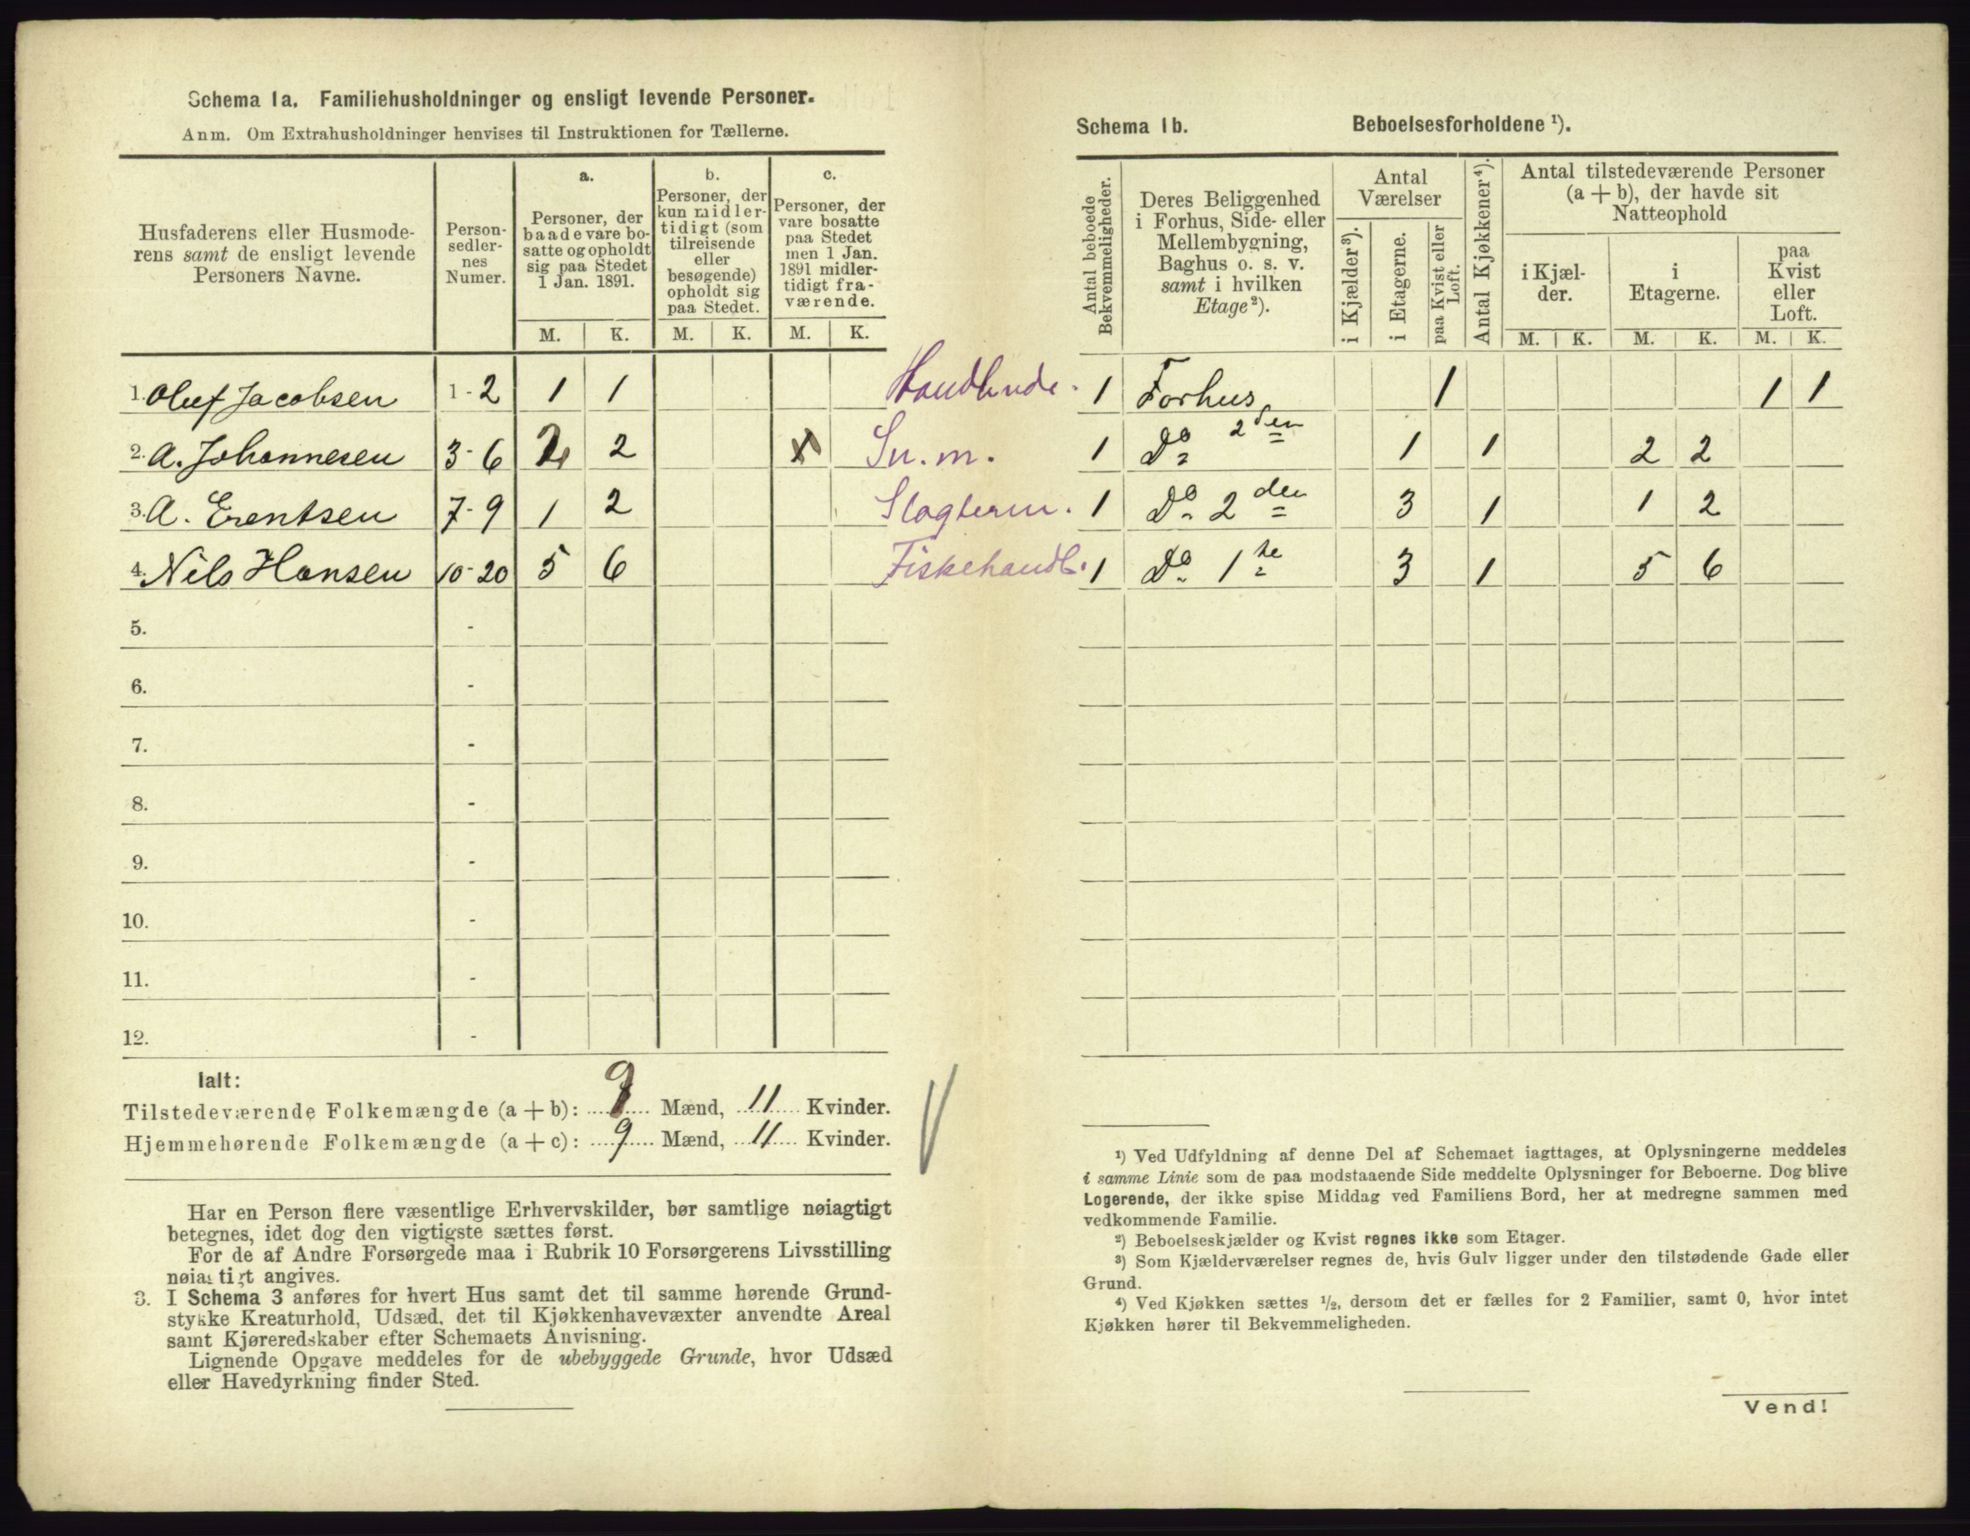 Schema 1a. Familiehusholdninger og ensligt levende Personer.
Anm. Om Extrahusholdninger henvises til Instruktionen for Tællerne.
Husfaderens eller Husmode-
rens samt de ensligt levende
Personers Navne.
Person-
sedler-
nes
Numer.
a.
Personer, der
baade vare bo-
satte og opholdt
sig paa Stedet
1 Jan. 1891.
b.
Personer, der
kun midler-
tidigt (som
tilreisende
eller
besøgende)
opholdt sig
paa Stedet.
c.
Personer, der
vare bosatte
paa Stedet
men 1 Jan.
1891 midler-
tidigt fra-
værende.
M. K. M. K. M. K.
1. Oluf Jacobsen 1-2 1 1 Handlende.
2. A. Johannesen 3-6 2 2 Sn.m.
3. A. Erentsen 7-9 1 2 Slagterm.
4. Nils Hansen 10-20 5 6 Fiskehandl.
5. -
6. -
7. -
8. -
9. -
10. -
11. -
12. -
Ialt:
Tilstedeværende Folkemængde (a + b): 9 Mænd, 11 Kvinder.
Hjemmehørende Folkemængde (a + c): 9 Mænd, 11 Kvinder.
Har en Person flere væsentlige Erhvervskilder, bør samtlige nøiagtigt
betegnes, idet dog den vigtigste sættes først.
For de af Andre Forsørgede maa i Rubrik 10 Forsørgerens Livsstilling
nøiagtigt angives.
3. I Schema 3 anføres for hvert Hus samt det til samme hørende Grund-
stykke Kreaturhold, Udsæd, det til Kjøkkenhavevæxter anvendte Areal
samt Kjøreredskaber efter Schemaets Anvisning.
Lignende Opgave meddeles for de ubebyggede Grunde, hvor Udsæd
eller Havedyrkning finder Sted.
Schema 1b. Beboelsesforholdene ¹).
Antal beboede
Bekvemmeligheder.
Deres Beliggenhed
i Forhus, Side- eller
Mellembygning,
Baghus o. s. v.
samt i hvilken
Etage²).
Antal
Værelser
i Kjælder³).
i Etagerne.
paa Kvist eller
Loft.
Antal Kjøkkener⁴).
Antal tilstedeværende Personer
(a + b), der havde sit
Natteophold
i Kjæl-
der.
i
Etagerne.
paa
Kvist
eller
Loft.
M. K. M. K. M. K.
1 Forhus 1 1 1
1 Do 2den 1 1 2 2
1 Do 2den 3 1 1 2
1 Do 1te 3 1 5 6
¹) Ved Udfyldning af denne Del af Schemaet iagttages, at Oplysningerne meddeles
i samme Linie som de paa modstaaende Side meddelte Oplysninger for Beboerne. Dog blive
Logerende, der ikke spise Middag ved Familiens Bord, her at medregne sammen med
vedkommende Familie.
²) Beboelseskjælder og Kvist regnes ikke som Etager.
³) Som Kjælderværelser regnes de, hvis Gulv ligger under den tilstødende Gade eller
Grund.
⁴) Ved Kjøkken sættes ½, dersom det er fælles for 2 Familier, samt 0, hvor intet
Kjøkken hører til Bekvemmeligheden.
Vend!